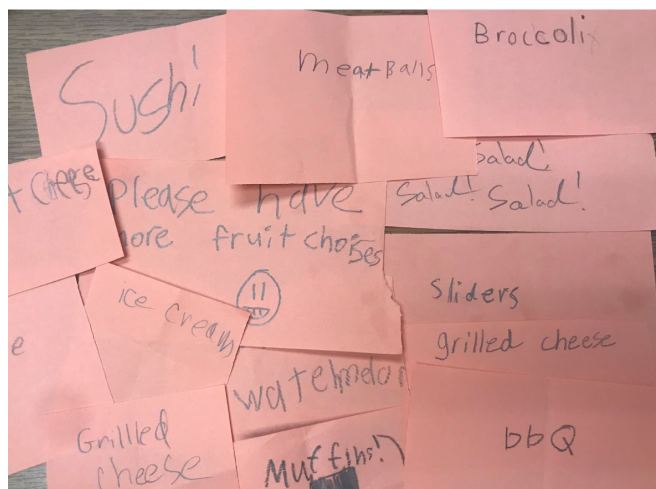 Sushi
Meat Balls
Broccoli
Salad!
Salad! Salad!
t Cheese
Please have
ore fruit choises
Sliders
ice cream
grilled cheese
watermelon
Grilled
cheese
Muffins!
bbQ
e